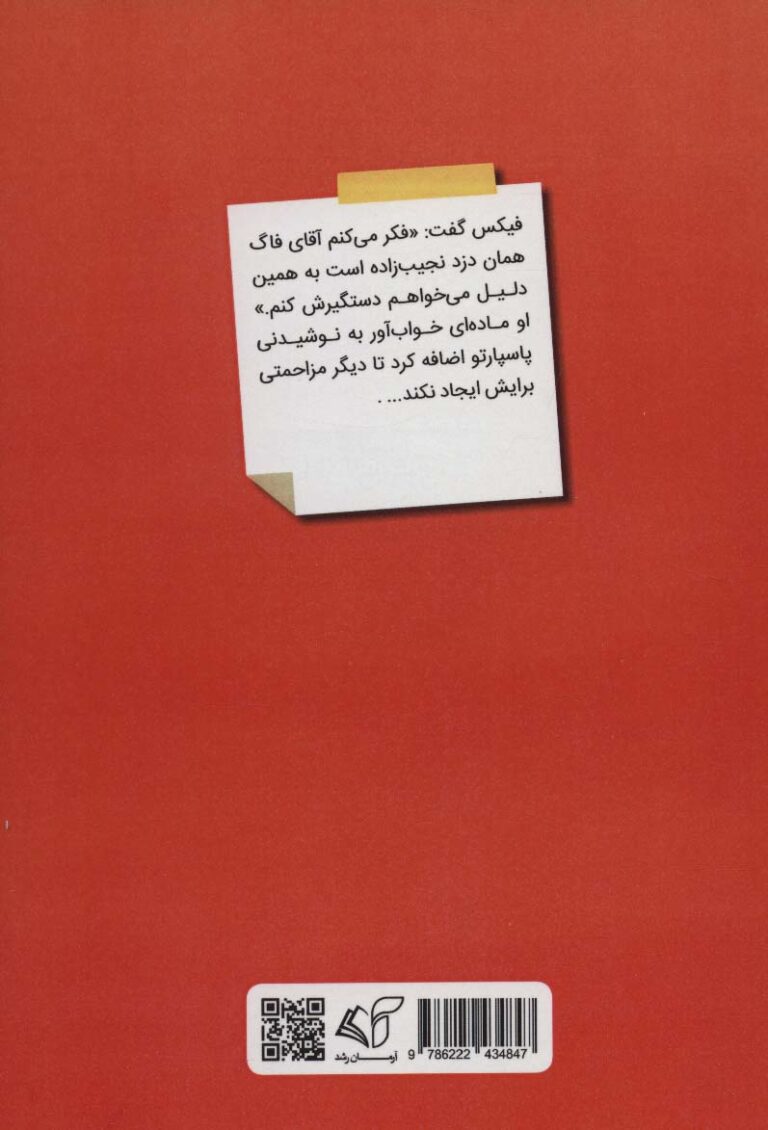 فیکس گفت: «فکر می‌کنم آقای فاگ
همان دزد نجیب‌زاده است به همین
دلیل می‌خواهم دستگیرش کنم.»
او ماده‌ای خواب‌آور به نوشیدنی
پاسپارتو اضافه کرد تا دیگر مزاحمتی
برایش ایجاد نکند... .
آرمان رشد
9 786222 434847